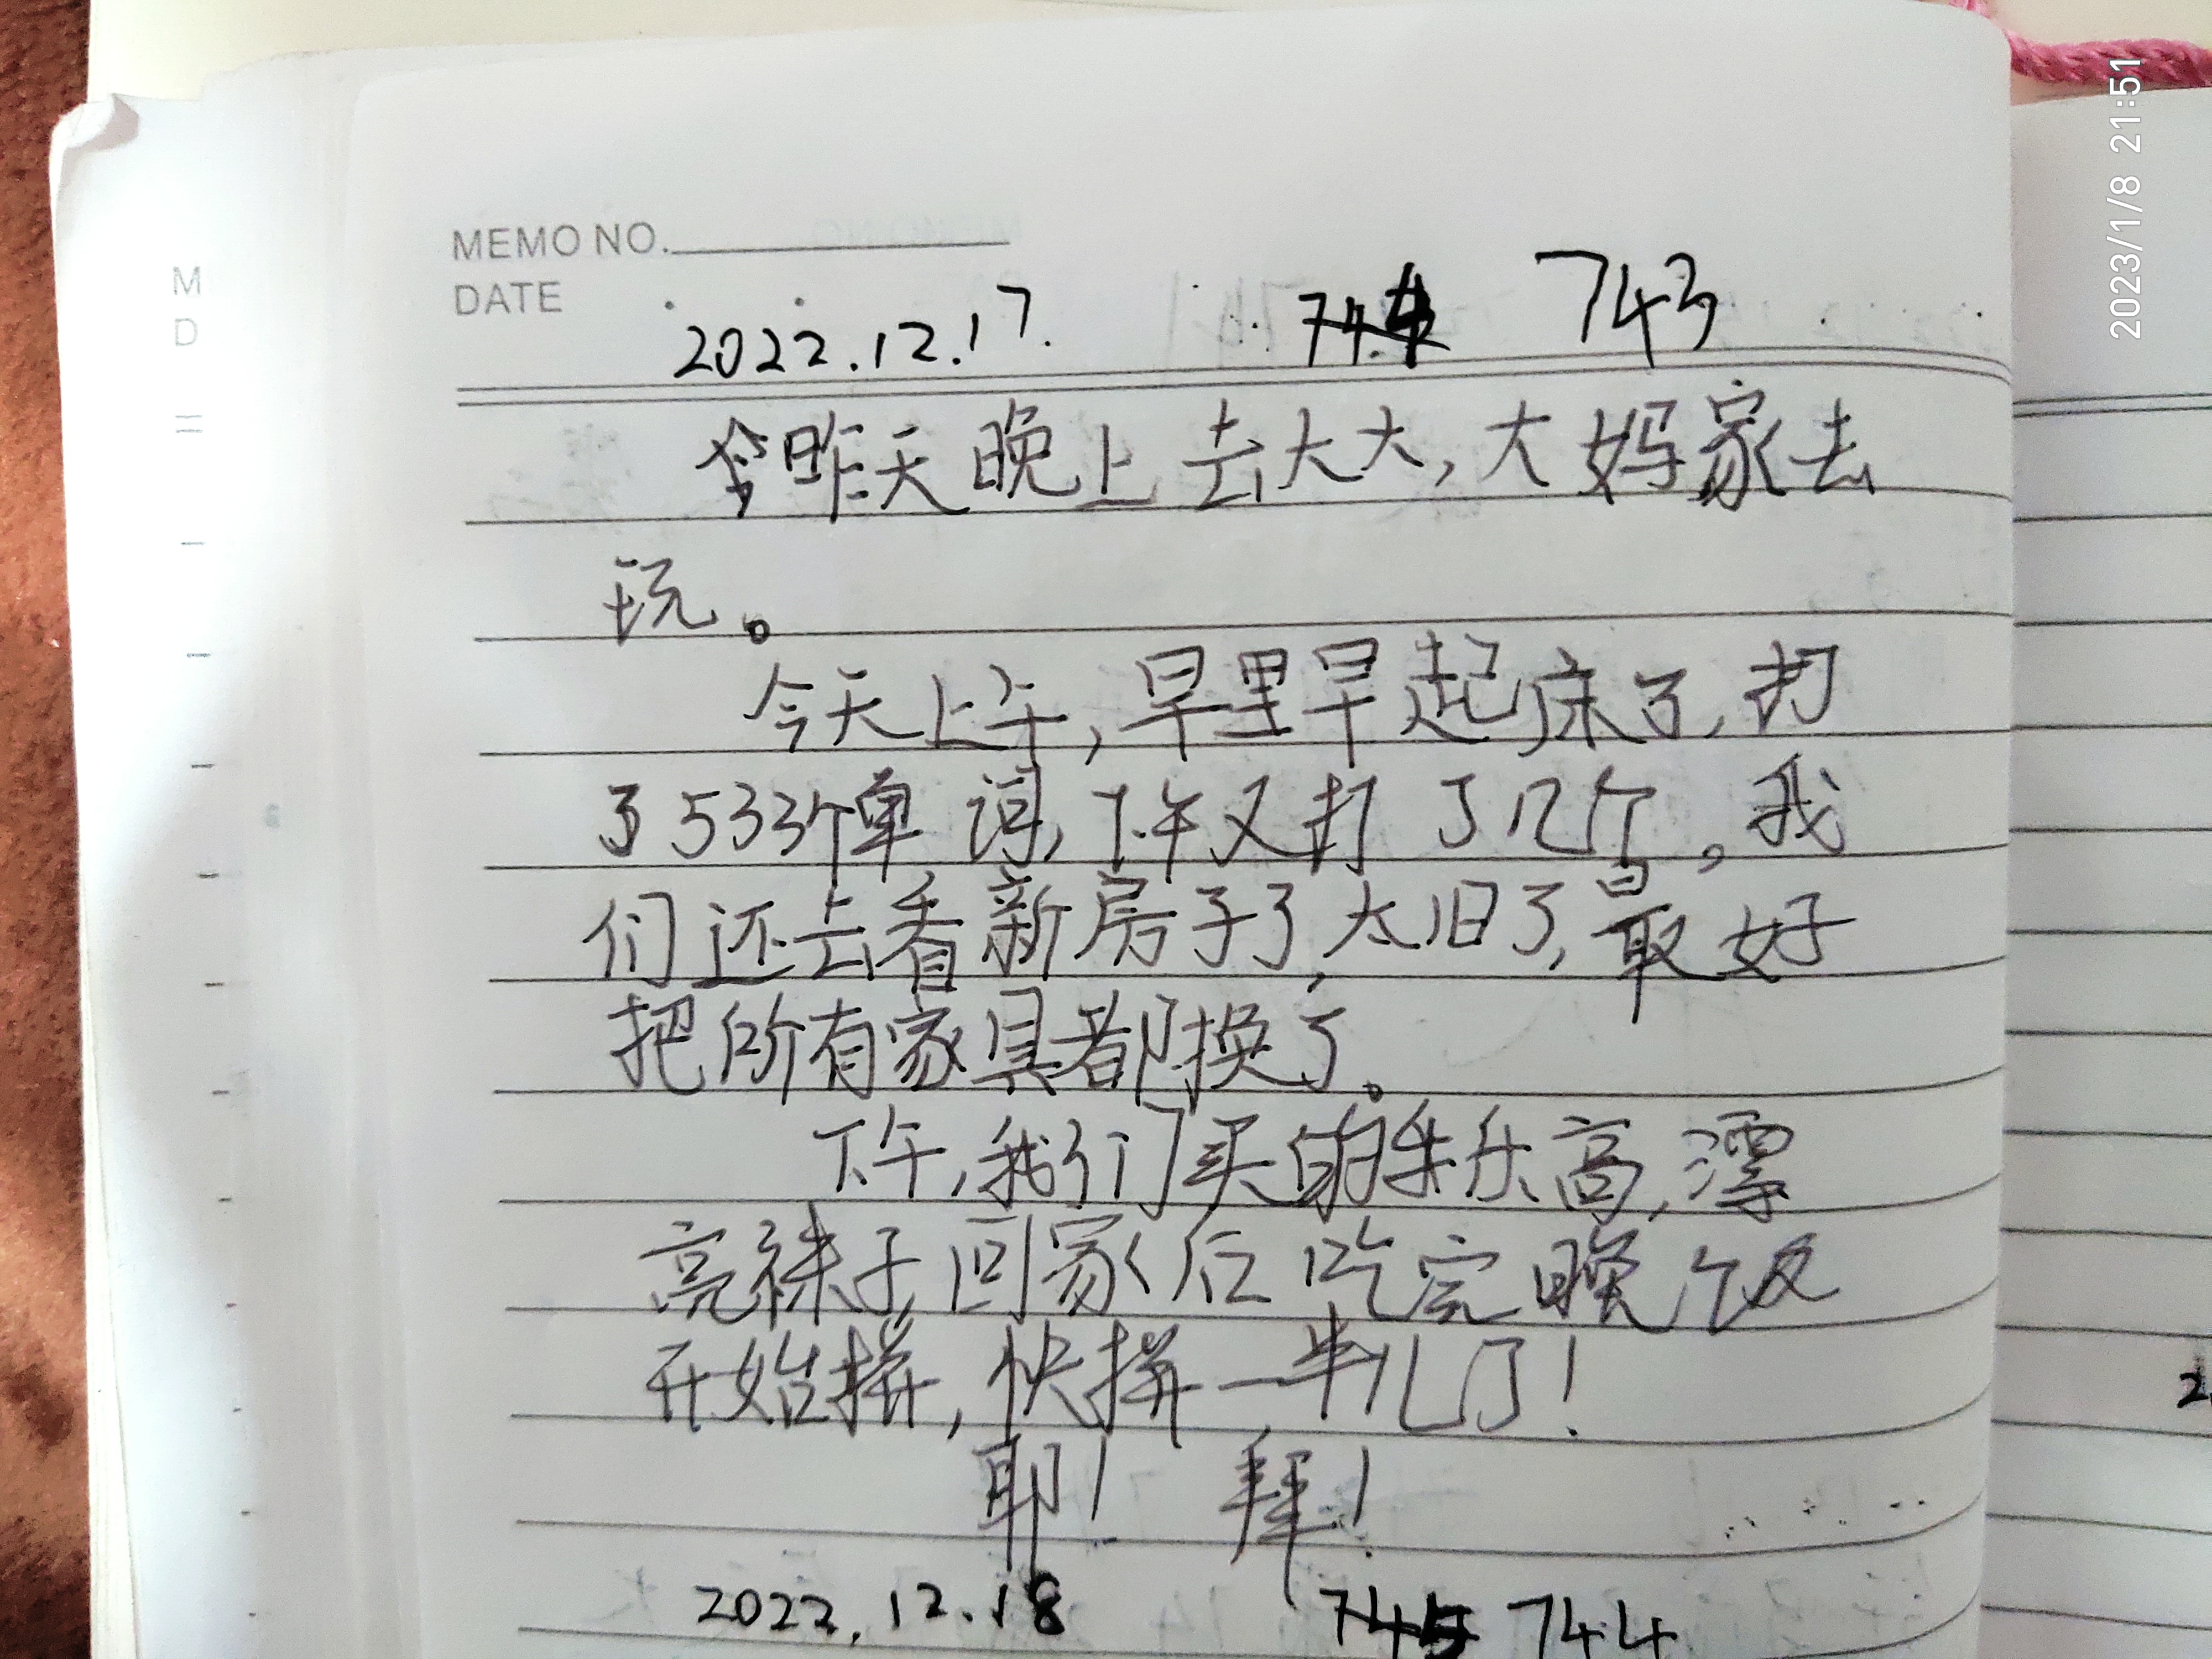 MEMO NO.
DATE
2022.12.17. 743
昨天晚上去大大,大妈家去
玩。
今天上午,早里早起床了,打
了533个单词,下午又打了几个。我
们还去看新房子了,太旧了,最好
把所有家具都换了。
下午,我们买的乐高,漂
亮袜子,回家后吃完晚饭
开始拼,快拼一半儿了!
耶! 拜!
2022.12.18 744
M
D
2023/1/8 21:51